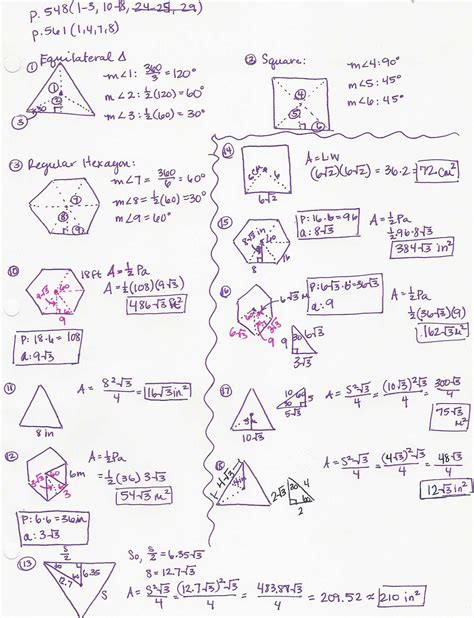 p. 548 (1-3, 10-18, 24-25, 29)
p. 561 (1,4,7,8)
① Equilateral Δ
m∠1: 360/3 = 120°
m∠2: ½(120) = 60°
m∠3: ½(60) = 30°
② Square:
m∠4: 90°
m∠5: 45°
m∠6: 45°
③ Regular Hexagon:
m∠7 = 360/6 = 60°
m∠8 = ½(60) = 30°
m∠9 = 60°
⑭ A = LW
(6√2)(6√2) = 36·2 = 72 cm²
6√2
⑮ P: 16·6 = 96
a: 8√3
A = ½Pa
½·96·8√3
384√3 in²
8√3 in
8
16
⑩ 18ft
A = ½Pa
A = ½(108)(9√3)
486√3 ft²
9√3
9
P: 18·6 = 108
a: 9√3
⑯ 6√3 M
P: 6√3·6 = 36√3
a: 9
A = ½Pa
½(36√3)(9)
162√3 M²
6√3
9
30
6√3
3√3
⑪ 8 in
A = 8²√3/4 = 16√3 in²
⑰ 10√3
10
60
5
30
5√3
A = S²√3/4 = (10√3)²√3/4 = 300√3/4
75√3 M²
⑫ 6m
60
3
A = ½Pa
= ½(36) 3√3
54√3 M²
P: 6·6 = 36in
a: 3√3
18
4√3
4in
2√3
30
4
60
2
A = S²√3/4 = (4√3)²√3/4 = 48√3/4
12√3 in²
⑬ S/2
30
60
6.35
12.7
S
So, S/2 = 6.35√3
S = 12.7√3
A = S²√3/4 = (12.7√3)²√3/4 = 483.87√3/4 = 209.52 ≈ 210 in²